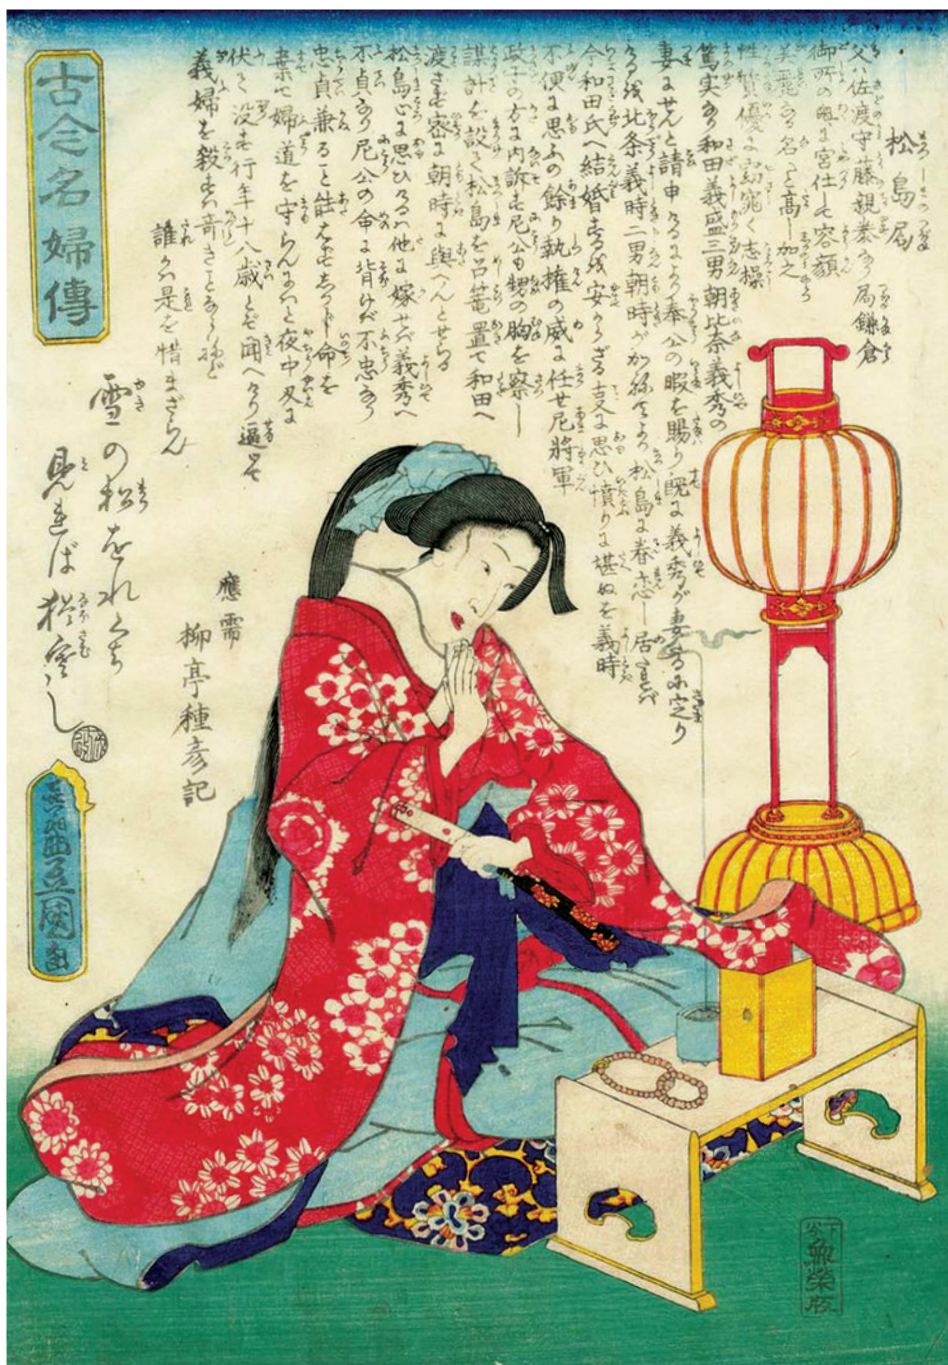 古今名婦傳
松島局
父ハ佐渡守藤親泰なり局鎌倉
御所の奥に宮仕して容顔
美麗なる名も高し加之
性質優に窈窕く志操
篤実なり和田義盛三男朝比奈義秀の
妻にせんと請申けるにより奉公の暇を賜り既に義秀が妻なるに定り
けるを北条義時二男朝時がかねてより松島に眷恋し居たれば
今和田氏へ結婚するを安からざる事に思ひ憤りに堪ぬを義時
不便に思ふの餘り執権の威に任せ尼將軍
政子の方に内訴せ尼公も甥の胸を察し
謀計を設て松島を召篭置て和田へ
渡さず密に朝時に與へんとせらる
松島心に思ひけるハ他に嫁せば義秀へ
不貞なり尼公の命に背けば不忠なり
忠貞兼ること能はずしかじ命を
棄て婦道を守らんにハと夜中刄に
伏て没す行年十八歳とぞ聞へける逼て
義婦を殺すハ奇きこと
誰か是を惜まざらん
雪の松をれくち
見れば猶寒し
應需
柳亭種彦記
豊国画
魚榮版